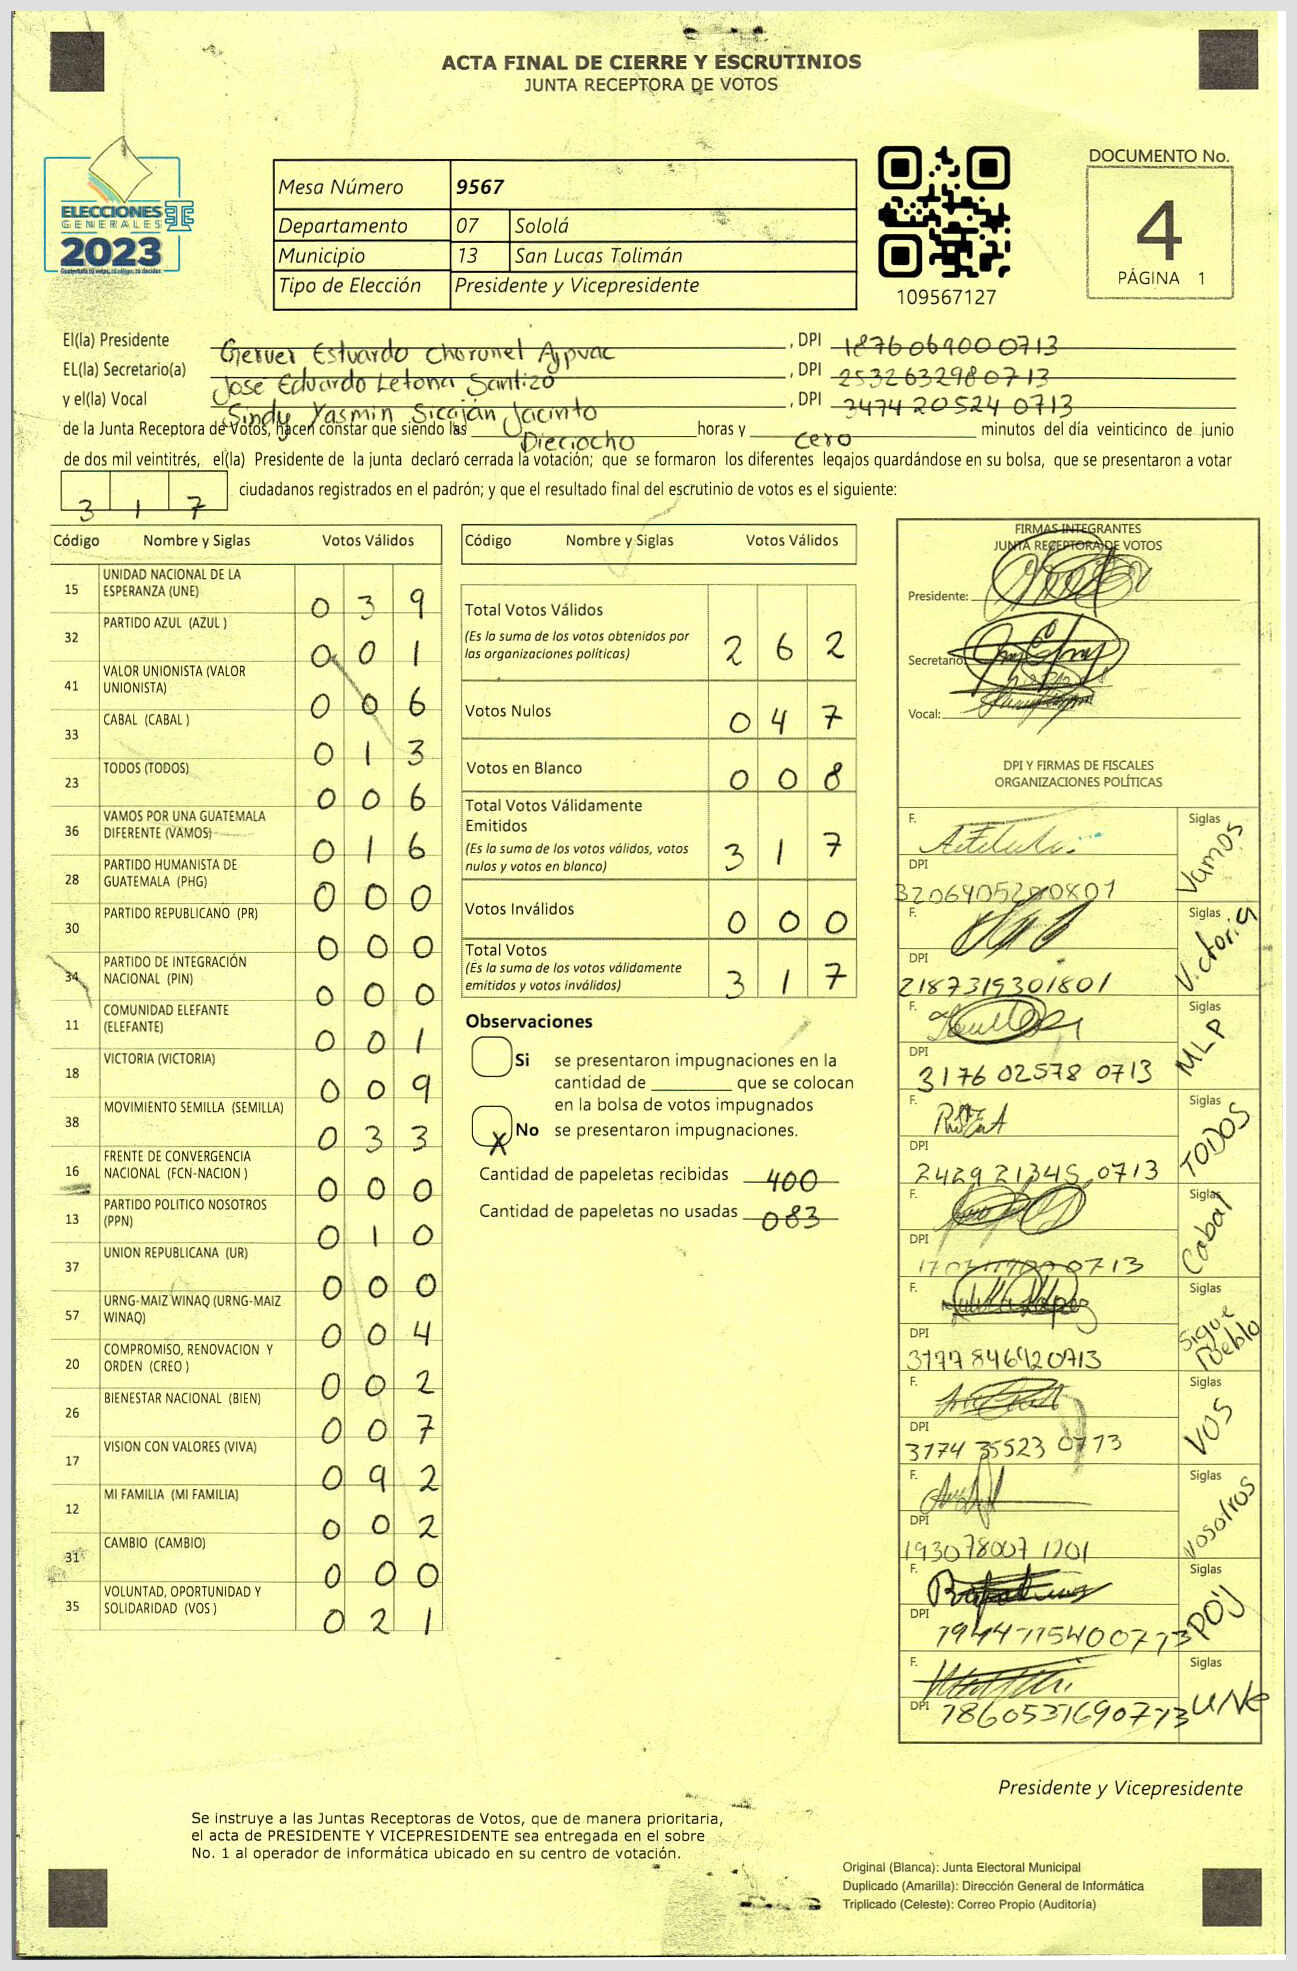 ACTA FINAL DE CIERRE Y ESCRUTINIOS
JUNTA RECEPTORA DE VOTOS
ELECCIONES
GENERALES
2023
Mesa Número 9567
Departamento 07 Sololá
Municipio 13 San Lucas Tolimán
Tipo de Elección Presidente y Vicepresidente
109567127
DOCUMENTO No.
4
PÁGINA 1
El(la) Presidente Gerver Estuardo Choronel Ajpuac, DPI 1876069000713
EL(la) Secretario(a) José Eduardo Letona Santizo, DPI 2532632980713
y el(la) Vocal Sindy Yasmin Sicaján Jacinto, DPI 3474 20524 0713
de la Junta Receptora de Votos, hacen constar que siendo las Dieciocho horas y cero minutos del día veinticinco de junio
de dos mil veintitrés, el(la) Presidente de la junta declaró cerrada la votación; que se formaron los diferentes legajos guardándose en su bolsa, que se presentaron a votar
317 ciudadanos registrados en el padrón; y que el resultado final del escrutinio de votos es el siguiente:
Código Nombre y Siglas Votos Válidos
15 UNIDAD NACIONAL DE LA ESPERANZA (UNE) 039
32 PARTIDO AZUL (AZUL ) 001
41 VALOR UNIONISTA (VALOR UNIONISTA) 006
33 CABAL (CABAL ) 013
23 TODOS (TODOS) 006
36 VAMOS POR UNA GUATEMALA DIFERENTE (VAMOS) 016
28 PARTIDO HUMANISTA DE GUATEMALA (PHG) 000
30 PARTIDO REPUBLICANO (PR) 000
34 PARTIDO DE INTEGRACIÓN NACIONAL (PIN) 000
11 COMUNIDAD ELEFANTE (ELEFANTE) 001
18 VICTORIA (VICTORIA) 009
38 MOVIMIENTO SEMILLA (SEMILLA) 033
16 FRENTE DE CONVERGENCIA NACIONAL (FCN-NACION ) 000
13 PARTIDO POLITICO NOSOTROS (PPN) 010
37 UNION REPUBLICANA (UR) 000
57 URNG-MAIZ WINAQ (URNG-MAIZ WINAQ) 004
20 COMPROMISO, RENOVACION Y ORDEN (CREO ) 002
26 BIENESTAR NACIONAL (BIEN) 007
17 VISION CON VALORES (VIVA) 092
12 MI FAMILIA (MI FAMILIA) 002
31 CAMBIO (CAMBIO) 000
35 VOLUNTAD, OPORTUNIDAD Y SOLIDARIDAD (VOS ) 021
Código Nombre y Siglas Votos Válidos
Total Votos Válidos 262
(Es la suma de los votos obtenidos por
las organizaciones políticas)
Votos Nulos 047
Votos en Blanco 008
Total Votos Válidamente
Emitidos 317
(Es la suma de los votos válidos, votos
nulos y votos en blanco)
Votos Inválidos 000
Total Votos 317
(Es la suma de los votos válidamente
emitidos y votos inválidos)
Observaciones
Si se presentaron impugnaciones en la
cantidad de ________ que se colocan
en la bolsa de votos impugnados
X No se presentaron impugnaciones.
Cantidad de papeletas recibidas 400
Cantidad de papeletas no usadas 083
FIRMAS INTEGRANTES
JUNTA RECEPTORA DE VOTOS
Presidente:
Secretario:
Vocal:
DPI Y FIRMAS DE FISCALES
ORGANIZACIONES POLÍTICAS
F. Siglas Vamos
DPI
F. Siglas Victoria
DPI 2187319301801
F. Siglas MLP
DPI 3176 02578 0713
F. Siglas TODOS
DPI 2429 21345 0713
F. Siglas Cabal
DPI
F. Siglas Sigue Pueblo
DPI
F. Siglas VOS
DPI 3174 35523 0713
F. Siglas Nosotros
DPI 193078007 1201
F. Siglas POY
DPI
F. Siglas UNe
DPI 1860531690713
Presidente y Vicepresidente
Se instruye a las Juntas Receptoras de Votos, que de manera prioritaria,
el acta de PRESIDENTE Y VICEPRESIDENTE sea entregada en el sobre
No. 1 al operador de informática ubicado en su centro de votación.
Original (Blanca): Junta Electoral Municipal
Duplicado (Amarilla): Dirección General de Informática
Triplicado (Celeste): Correo Propio (Auditoría)